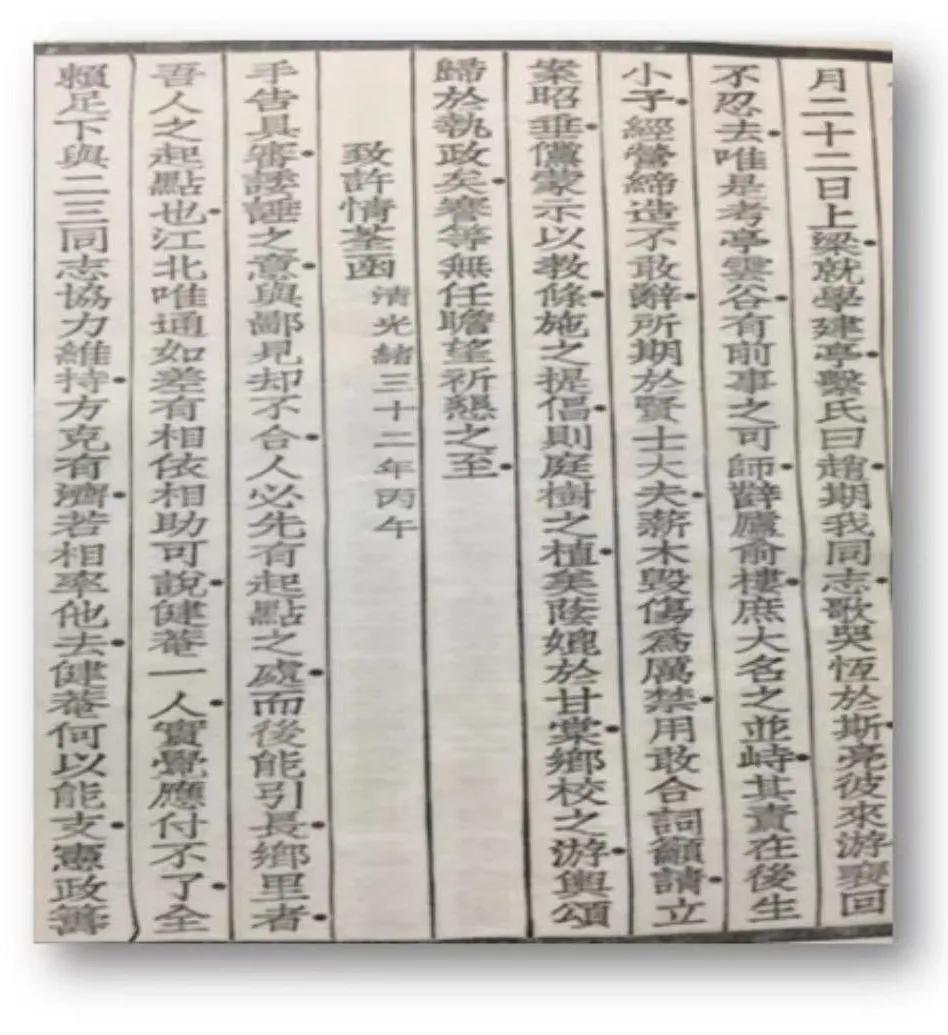 月二十二日上梁•就學建亭•繫氏曰趙•期我同志•歌哭恆於斯•亮彼來游裵回
不忍去•唯是考亭雲谷•有前事之可師•辥廬俞樓•庶大名之並峙•其責在後生
小子•經營締造不敢辭•所期於賢士大夫•薪木毀傷爲厲禁•用敢合詞籲請•立
案昭垂•儻蒙示以教條•施之提倡•則庭樹之植•美蔭媲於甘棠•鄉校之游•輿頌
歸於執政矣•謇等無任瞻望祈懇之至•
致許情荃函 清光緒三十二年丙午
手告具審•諉諈之意•與鄙見却不合•人必先有起點之處•而後能引長•鄉里者•
吾人之起點也•江北唯通如差有相依相助可說•健菴一人•實覺應付不了•全
賴足下與二三同志協力維持•方克有濟•若相率他去•健菴何以能支•憲政籌